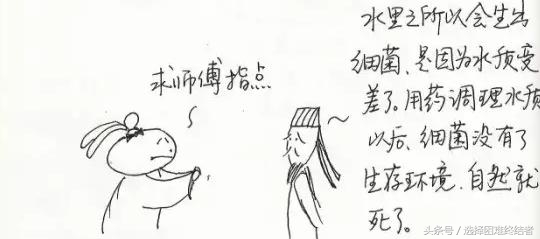 求师傅指点
水里之所以会生出
细菌、是因为水质变
差了。用药调理水质
以后、细菌没有了
生存环境、自然就
死了。
头条号／选择困难终结者